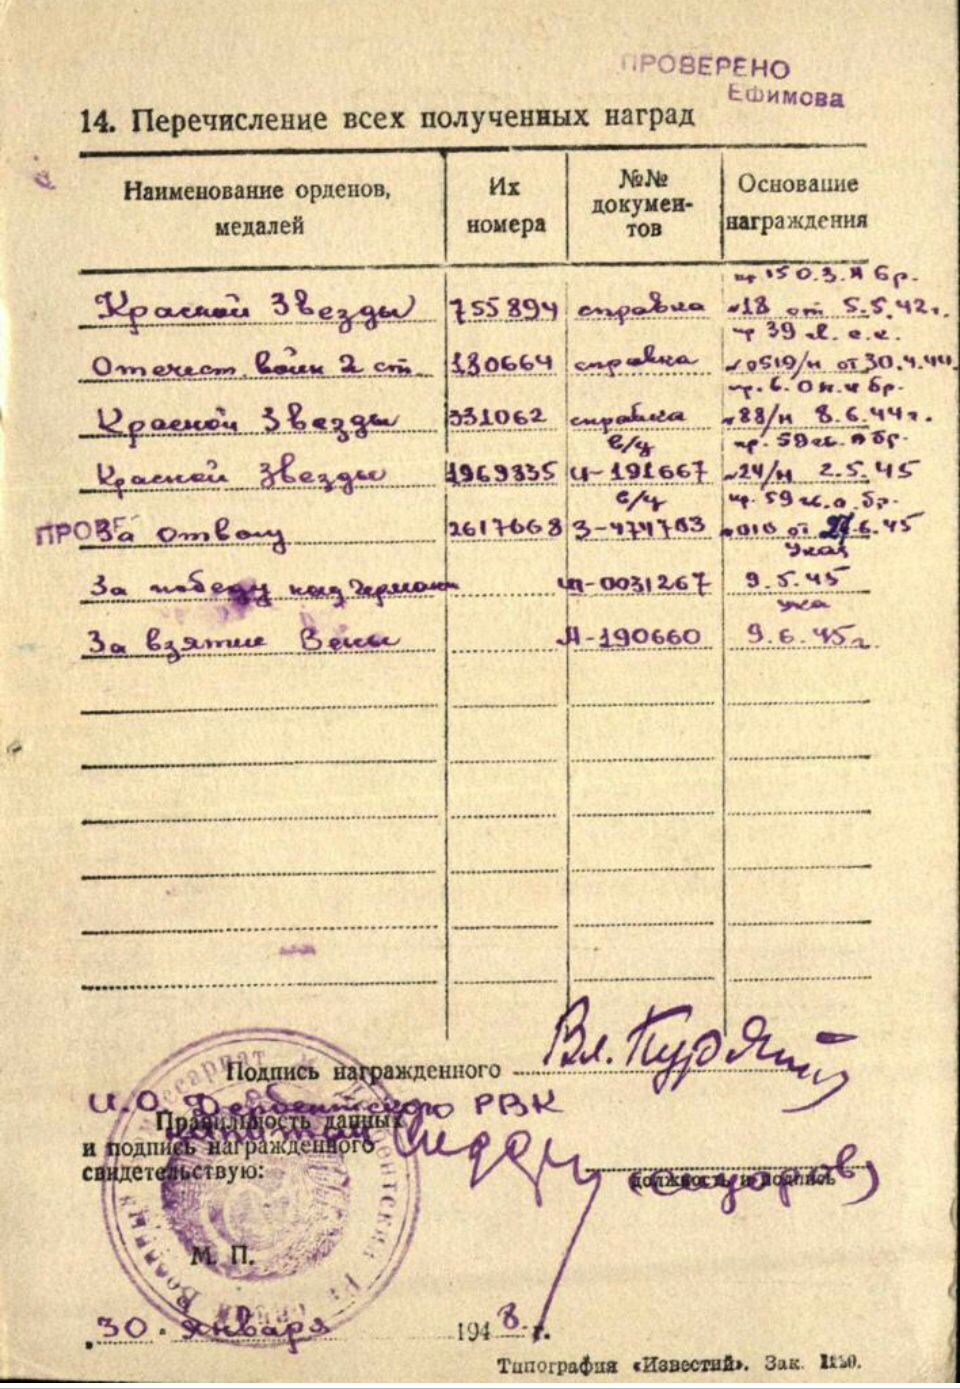 ПРОВЕРЕНО
Ефимова
14. Перечисление всех полученных наград
Наименование орденов, медалей
Их номера
№№ документов
Основание награждения
Красной Звезды 755894 справка пр. 150 З. А бр. №18 от 5.5.42 г.
Отечест. войн 2 ст. 180664 справка пр 39 №0519/н от 30.4.44
Красной Звезды 331062 справка пр. 6. бр. №88/н 8.6.44 г.
Красной Звезды 1969835 в/ч И-191667 пр. 59 бр. №24/н 2.5.45
ПРОВЕ
За отвагу 2617668 в/ч З-474783 пр. 59 бр. №010 от 6.45
За победу над Германи 0031267 Указ 9.5.45
За взятие Вены А-190660 Ука 9.6.45 г.
Подпись награжденного Вл.
И.О. Дербентского РВК
Правильность данных
капитан
и подпись награжденного
свидетельствую:
должность и подпись
М. П.
„30" января 1948 г.
Типография «Известий». Зак.